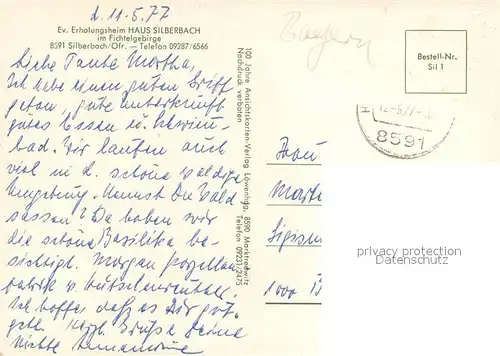 d. 11.5.77
Ev. Erholungsheim HAUS SILBERBACH
im Fichtelgebirge
8591 Silberbach/Ofr. — Telefon 09287/6566
Liebe Tante Martha,
Ich habe einen guten Griff
getan, gute Unterkunft
gutes Essen u. Schwimm-
bad. Wir laufen auch
viel in d. schöne waldige
Umgebung. Kennst Du Wald
sassen? Da haben wir
die schöne Basilika be-
sichtigt. Morgen Porzellan
fabrik v. Hutschenreuther.
Ich hoffe, daß es Dir gut
geht. Herzl. Grüße Deine
Nichte Annemarie
100 Jahre Ansichtskarten-Verlag Löwenhdg. 8590 Marktredwitz
Nachdruck verboten
Telefon 09231/2475
Bayern
Bestell-Nr.
Sil 1
8591
Frau
Martha
1000
privacy protection
Datenschutz